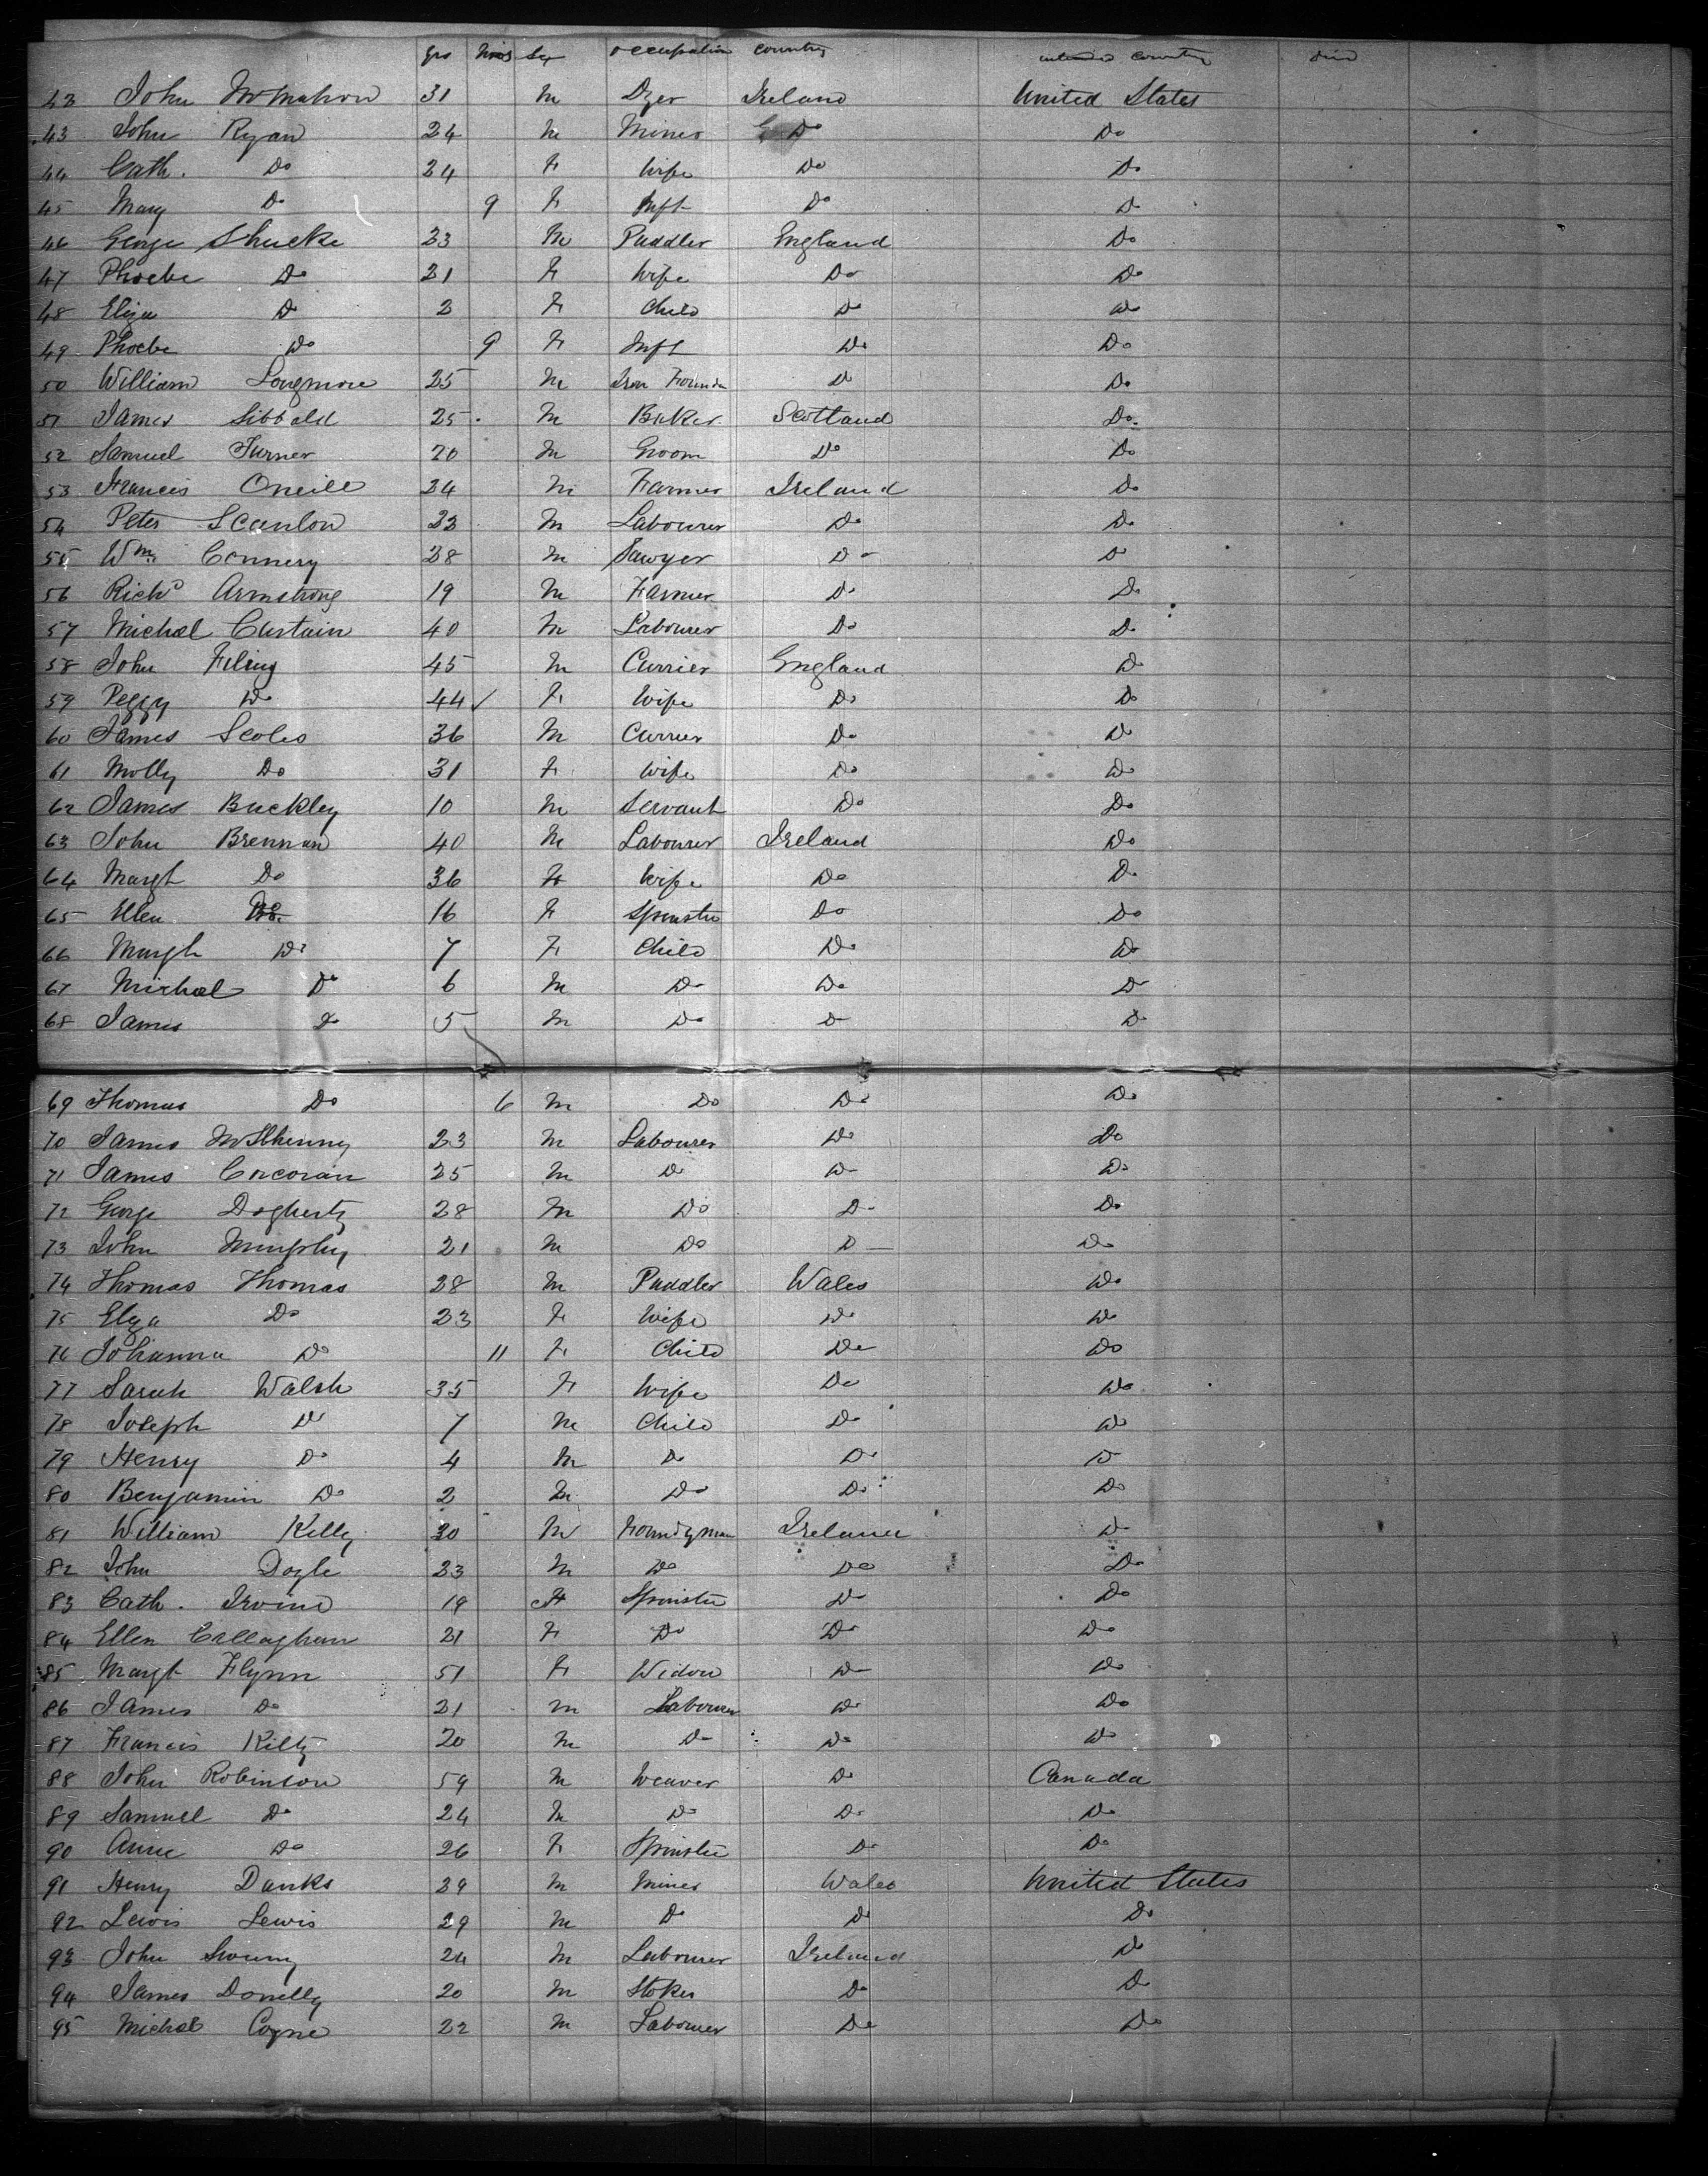 yrs mos Sex occupation country intended country died
42 John McMahon 31 M Dyer Ireland United States
43 John Ryan 24 M Miner Do Do
44 Cath. Do 24 F Wife Do Do
45 Mary Do 9 F Inft Do Do
46 George Shucke 23 M Puddler England Do
47 Phoebe Do 21 F Wife Do Do
48 Eliza Do 2 F Child Do Do
49 Phoebe Do 9 F Inft Do Do
50 William Longmore 25 M Iron Founder Do Do
51 James Sibbald 25 M Baker Scotland Do
52 Samuel Turner 20 M Groom Do Do
53 Francis Oneill 24 M Farmer Ireland Do
54 Peter Scanlon 22 M Labourer Do Do
55 Wm Connery 28 M Sawyer Do Do
56 Richd Armstrong 19 M Farmer Do Do
57 Michael Curtain 40 M Labourer Do Do
58 John 45 M Currier England Do
59 Peggy Do 44 F Wife Do Do
60 James Scoles 36 M Currier Do Do
61 Molly Do 31 F Wife Do Do
62 James Buckley 10 M Servant Do Do
63 John Brennan 40 M Labourer Ireland Do
64 Margt Do 36 F Wife Do Do
65 Ellen Do 16 F Spinster Do Do
66 Margt Do 7 F Child Do Do
67 Michael Do 6 M Do Do Do
68 James Do 5 M Do Do Do
69 Thomas Do 6 M Do Do Do
70 James McIlhenny 23 M Labourer Do Do
71 James Corcoran 25 M Do Do Do
72 George Dogherty 28 M Do Do Do
73 John Murphy 21 M Do Do Do
74 Thomas Thomas 28 M Puddler Wales Do
75 Eliza Do 23 F Wife Do Do
76 Johanna Do 11 F Child Do Do
77 Sarah Walsh 35 F Wife Do Do
78 Joseph Do 7 M Child Do Do
79 Henry Do 4 M Do Do Do
80 Benjamin Do 2 M Do Do Do
81 William Kelly 30 M Foundryman Ireland Do
82 John Doyle 23 M Do Do Do
83 Cath. Irvine 19 F Spinster Do Do
84 Ellen Callaghan 21 F Do Do Do
85 Margt Flynn 51 F Widow Do Do
86 James Do 21 M Labourer Do Do
87 Francis Kilty 20 M Do Do Do
88 John Robinson 59 M Weaver Do Canada
89 Samuel Do 24 M Do Do Do
90 Anne Do 26 F Spinster Do Do
91 Henry Danks 39 M Miner Wales United States
92 Lewis Lewis 29 M Do Do Do
93 John 24 M Labourer Ireland Do
94 James Donelly 20 M Stoker Do Do
95 Michael Coyne 22 M Labourer Do Do